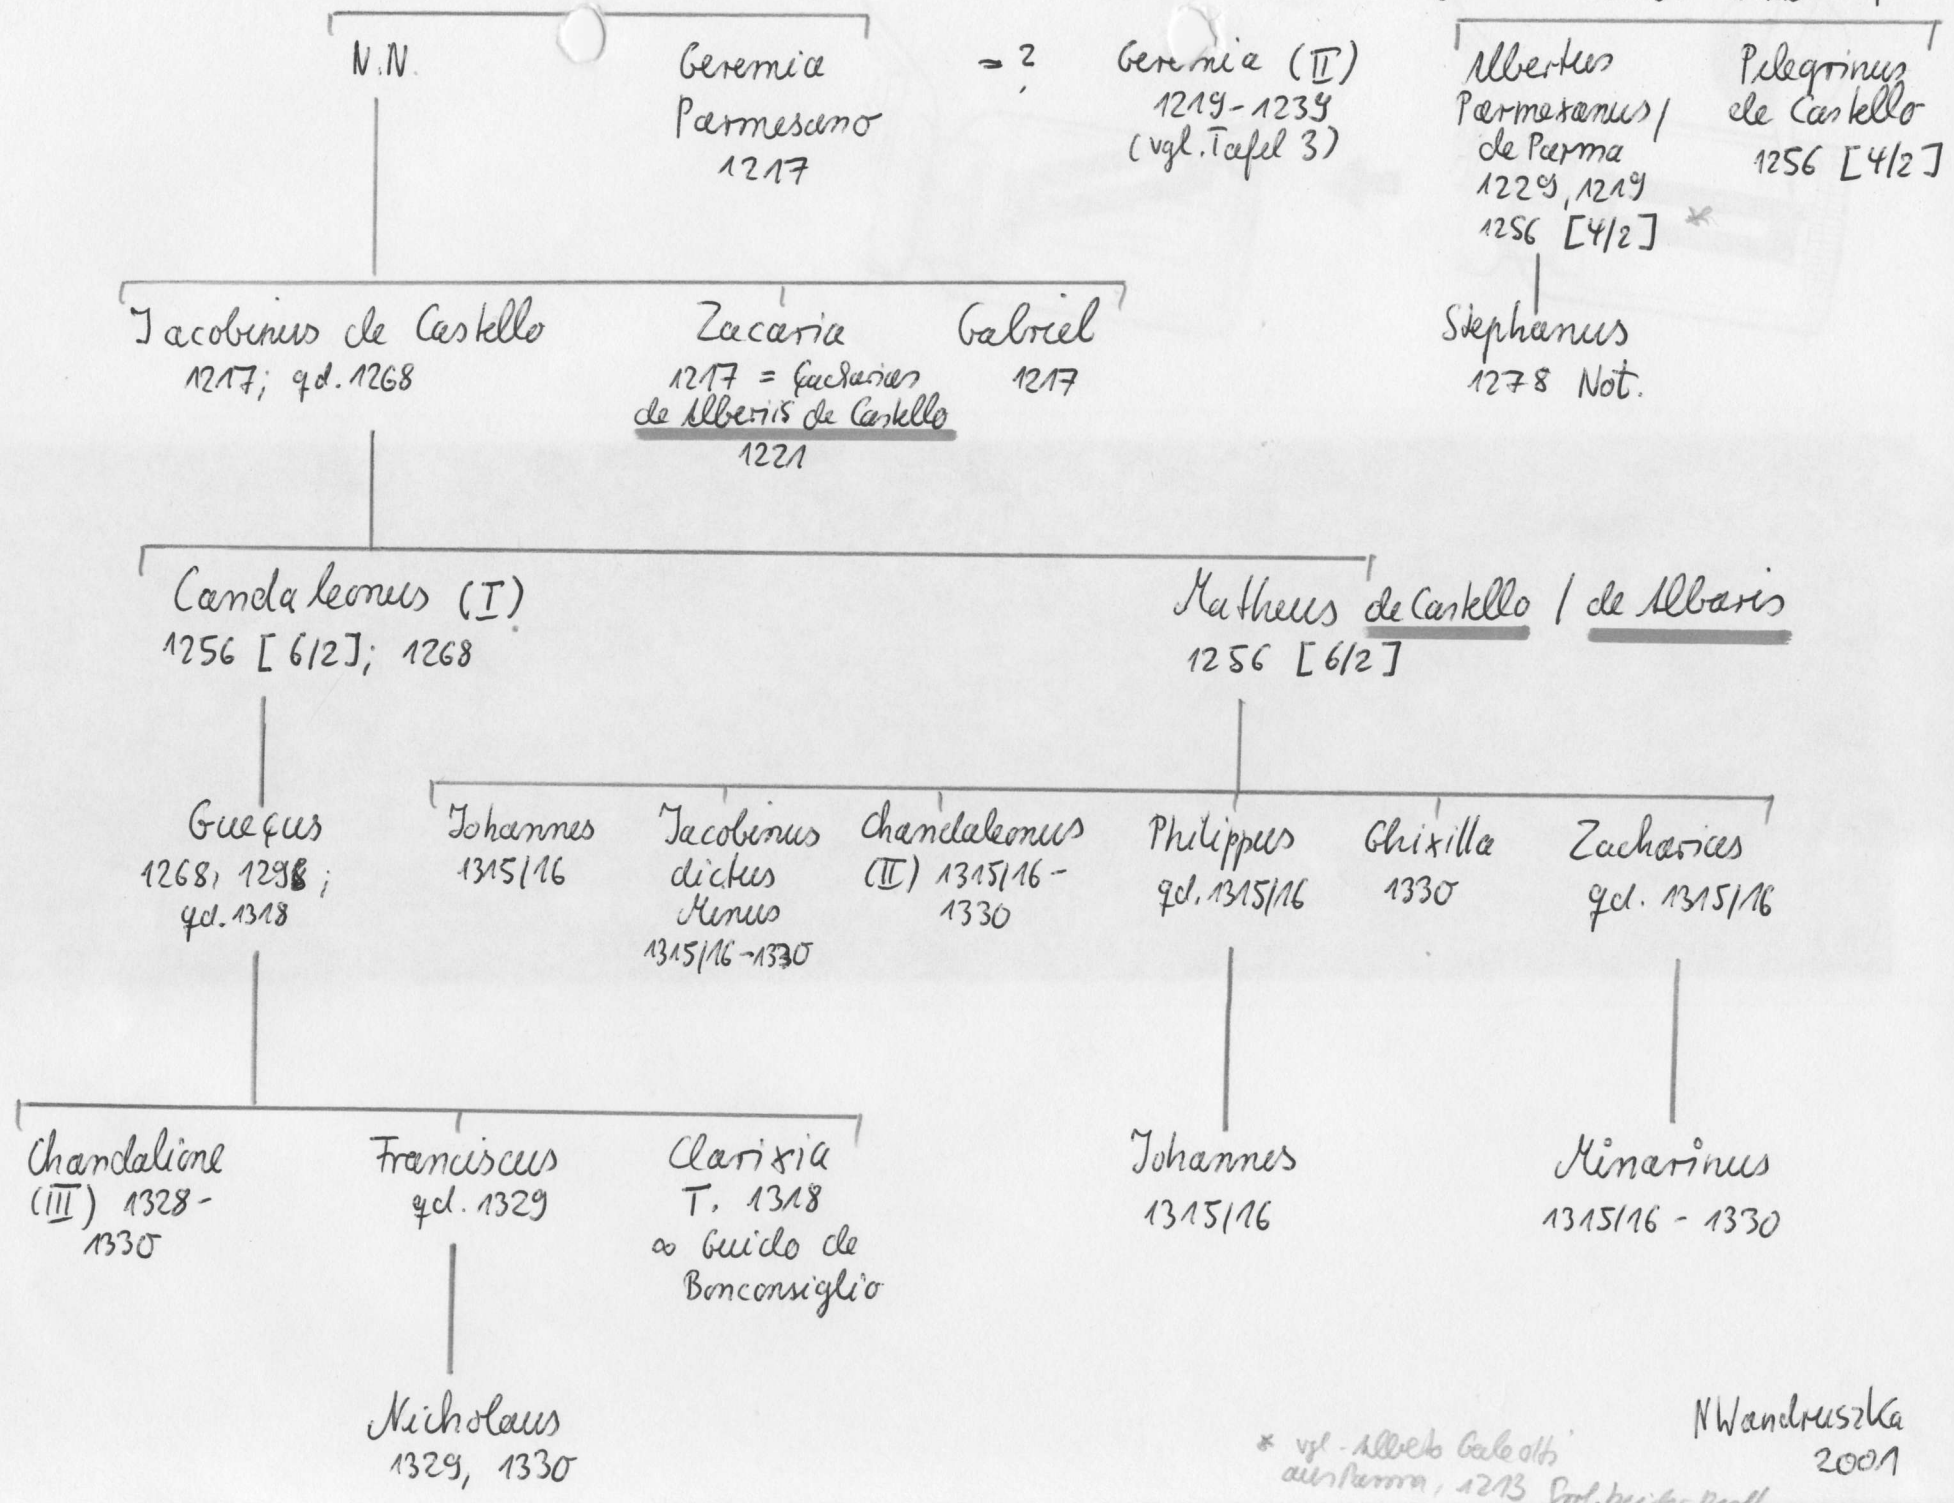 N.N.
Geremia
Parmesano
1217
= ?
Geremia (II)
1219-1239
(vgl. Tafel 3)
Albertus
Parmexanus/
de Parma
1229, 1219
1256 [4/2] *
Pelegrinus
de Castello
1256 [4/2]
Jacobinus de Castello
1217; qd. 1268
Zacaria
1217 = Çacharias
de Alberiis de Castello
1221
Gabriel
1217
Stephanus
1278 Not.
Candaleonus (I)
1256 [6/2]; 1268
Matheus de Castello / de Albaris
1256 [6/2]
Gueçus
1268, 1298;
qd. 1318
Johannes
1315/16
Jacobinus
dictus
Minus
1315/16-1330
Chandaleonus
(II) 1315/16-
1330
Philippus
qd. 1315/16
Ghixilla
1330
Zacharias
qd. 1315/16
Chandalione
(III) 1328-
1330
Franciscus
qd. 1329
Clarixia
T. 1318
∞ Guido de
Bonconsiglio
Johannes
1315/16
Minarinus
1315/16 - 1330
Nicholaus
1329, 1330
* vgl. Alberto Galeotti
aus Parma, 1213
NWandruszka
2001